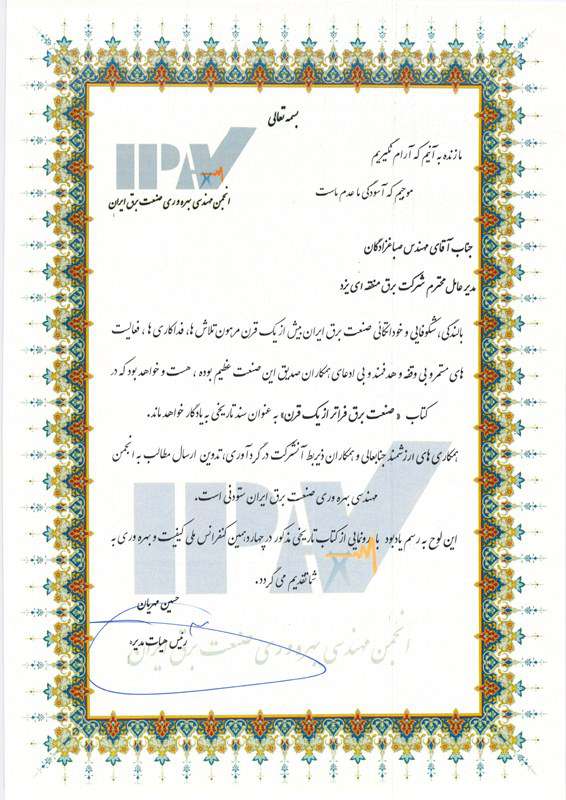 بسمه تعالی
IPA
انجمن مهندسی بهره وری صنعت برق ایران
ما زنده به آنیم که آرام نگیریم
موجیم که آسودگی ما عدم ماست
جناب آقای مهندس صباغزادگان
مدیر عامل محترم شرکت برق منطقه ای یزد
بالندگی، شکوفایی و خوداتکائی صنعت برق ایران بیش از یک قرن مرهون تلاش ها، فداکاری ها ، فعالیت
های مستمر و بی وقفه و هدفمند و بی ادعای همکاران صدیق این صنعت عظیم بوده ، هست و خواهد بود که در
کتاب « صنعت برق فراتر از یک قرن» به عنوان سند تاریخی به یادگار خواهد ماند.
همکاری های ارزشمند جنابعالی و همکاران ذیربط آنشرکت در گردآوری، تدوین ارسال مطالب به انجمن
مهندسی بهره وری صنعت برق ایران ستودنی است.
این لوح به رسم یادبود با رونمایی از کتاب تاریخی مذکور در چهاردهمین کنفرانس ملی کیفیت و بهره وری به
شما تقدیم می گردد.
حسین مهریان
رئیس هیات مدیره
IPA
انجمن مهندسی بهره وری صنعت برق ایران